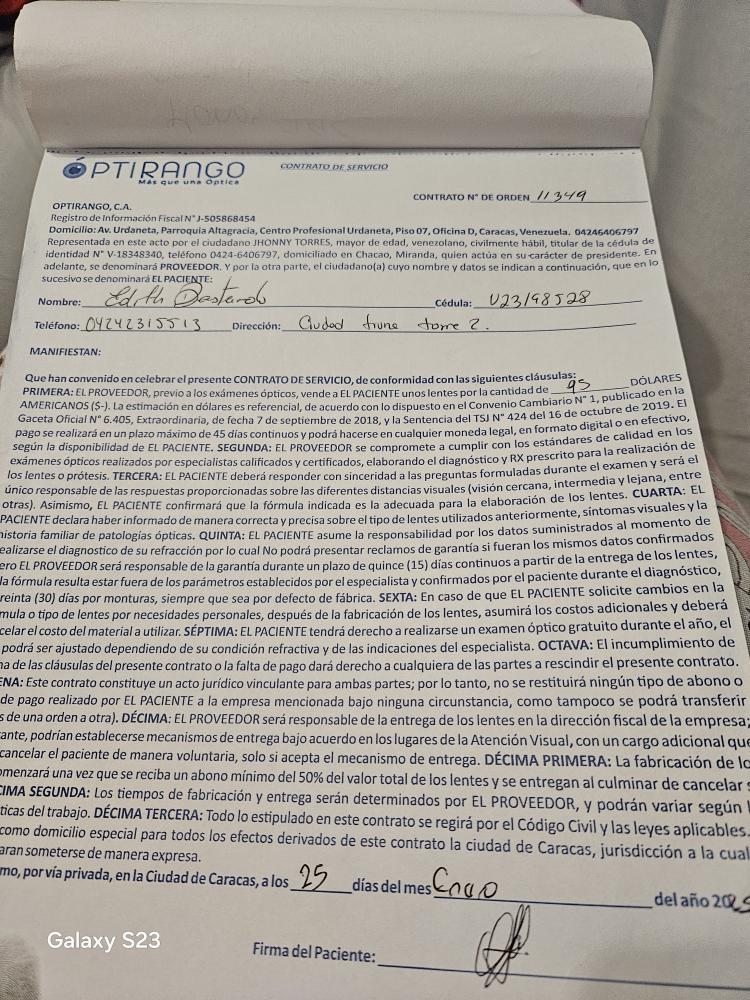 ÓPTIRANGO
Más que una Óptica
CONTRATO DE SERVICIO
CONTRATO N° DE ORDEN 11349
OPTIRANGO, C.A.
Registro de Información Fiscal N° J-505868454
Domicilio: Av. Urdaneta, Parroquia Altagracia, Centro Profesional Urdaneta, Piso 07, Oficina D, Caracas, Venezuela. 04246406797
Representada en este acto por el ciudadano JHONNY TORRES, mayor de edad, venezolano, civilmente hábil, titular de la cédula de
identidad N° V-18348340, teléfono 0424-6406797, domiciliado en Chacao, Miranda, quien actúa en su carácter de presidente. En
adelante, se denominará PROVEEDOR. Y por la otra parte, el ciudadano(a) cuyo nombre y datos se indican a continuación, que en lo
sucesivo se denominará EL PACIENTE:
Nombre: Edith Cédula: V23198528
Teléfono: 04242315513 Dirección: Ciudad torre 2.
MANIFIESTAN:
Que han convenido en celebrar el presente CONTRATO DE SERVICIO, de conformidad con las siguientes cláusulas:
PRIMERA: EL PROVEEDOR, previo a los exámenes ópticos, vende a EL PACIENTE unos lentes por la cantidad de 95 DÓLARES
AMERICANOS ($-). La estimación en dólares es referencial, de acuerdo con lo dispuesto en el Convenio Cambiario N° 1, publicado en la
Gaceta Oficial N° 6.405, Extraordinaria, de fecha 7 de septiembre de 2018, y la Sentencia del TSJ N° 424 del 16 de octubre de 2019. El
pago se realizará en un plazo máximo de 45 días continuos y podrá hacerse en cualquier moneda legal, en formato digital o en efectivo,
según la disponibilidad de EL PACIENTE. SEGUNDA: EL PROVEEDOR se compromete a cumplir con los estándares de calidad en los
exámenes ópticos realizados por especialistas calificados y certificados, elaborando el diagnóstico y RX prescrito para la realización de
los lentes o prótesis. TERCERA: EL PACIENTE deberá responder con sinceridad a las preguntas formuladas durante el examen y será el
único responsable de las respuestas proporcionadas sobre las diferentes distancias visuales (visión cercana, intermedia y lejana, entre
otras). Asimismo, EL PACIENTE confirmará que la fórmula indicada es la adecuada para la elaboración de los lentes. CUARTA: EL
PACIENTE declara haber informado de manera correcta y precisa sobre el tipo de lentes utilizados anteriormente, síntomas visuales y la
historia familiar de patologías ópticas. QUINTA: EL PACIENTE asume la responsabilidad por los datos suministrados al momento de
ealizarse el diagnostico de su refracción por lo cual No podrá presentar reclamos de garantía si fueran los mismos datos confirmados
ero EL PROVEEDOR será responsable de la garantía durante un plazo de quince (15) días continuos a partir de la entrega de los lentes,
la fórmula resulta estar fuera de los parámetros establecidos por el especialista y confirmados por el paciente durante el diagnóstico,
reinta (30) días por monturas, siempre que sea por defecto de fábrica. SEXTA: En caso de que EL PACIENTE solicite cambios en la
mula o tipo de lentes por necesidades personales, después de la fabricación de los lentes, asumirá los costos adicionales y deberá
celar el costo del material a utilizar. SÉPTIMA: EL PACIENTE tendrá derecho a realizarse un examen óptico gratuito durante el año, el
podrá ser ajustado dependiendo de su condición refractiva y de las indicaciones del especialista. OCTAVA: El incumplimiento de
na de las cláusulas del presente contrato o la falta de pago dará derecho a cualquiera de las partes a rescindir el presente contrato.
ENA: Este contrato constituye un acto jurídico vinculante para ambas partes; por lo tanto, no se restituirá ningún tipo de abono o
de pago realizado por EL PACIENTE a la empresa mencionada bajo ninguna circunstancia, como tampoco se podrá transferir
s de una orden a otra). DÉCIMA: EL PROVEEDOR será responsable de la entrega de los lentes en la dirección fiscal de la empresa;
ante, podrían establecerse mecanismos de entrega bajo acuerdo en los lugares de la Atención Visual, con un cargo adicional que
cancelar el paciente de manera voluntaria, solo si acepta el mecanismo de entrega. DÉCIMA PRIMERA: La fabricación de lo
omenzará una vez que se reciba un abono mínimo del 50% del valor total de los lentes y se entregan al culminar de cancelar s
CIMA SEGUNDA: Los tiempos de fabricación y entrega serán determinados por EL PROVEEDOR, y podrán variar según l
ticas del trabajo. DÉCIMA TERCERA: Todo lo estipulado en este contrato se regirá por el Código Civil y las leyes aplicables.
como domicilio especial para todos los efectos derivados de este contrato la ciudad de Caracas, jurisdicción a la cual
aran someterse de manera expresa.
mo, por vía privada, en la Ciudad de Caracas, a los 25 días del mes Enero del año 2025
Firma del Paciente:
Galaxy S23